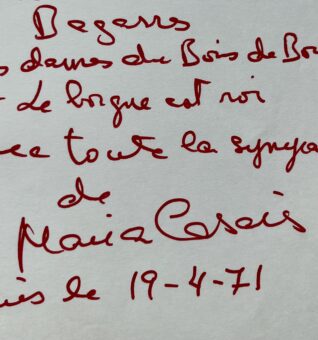 Bagarres
s dames du Bois de Bou
Le borgne est roi
ec toute la sympa
de
Maria Casarès
is le 19-4-71